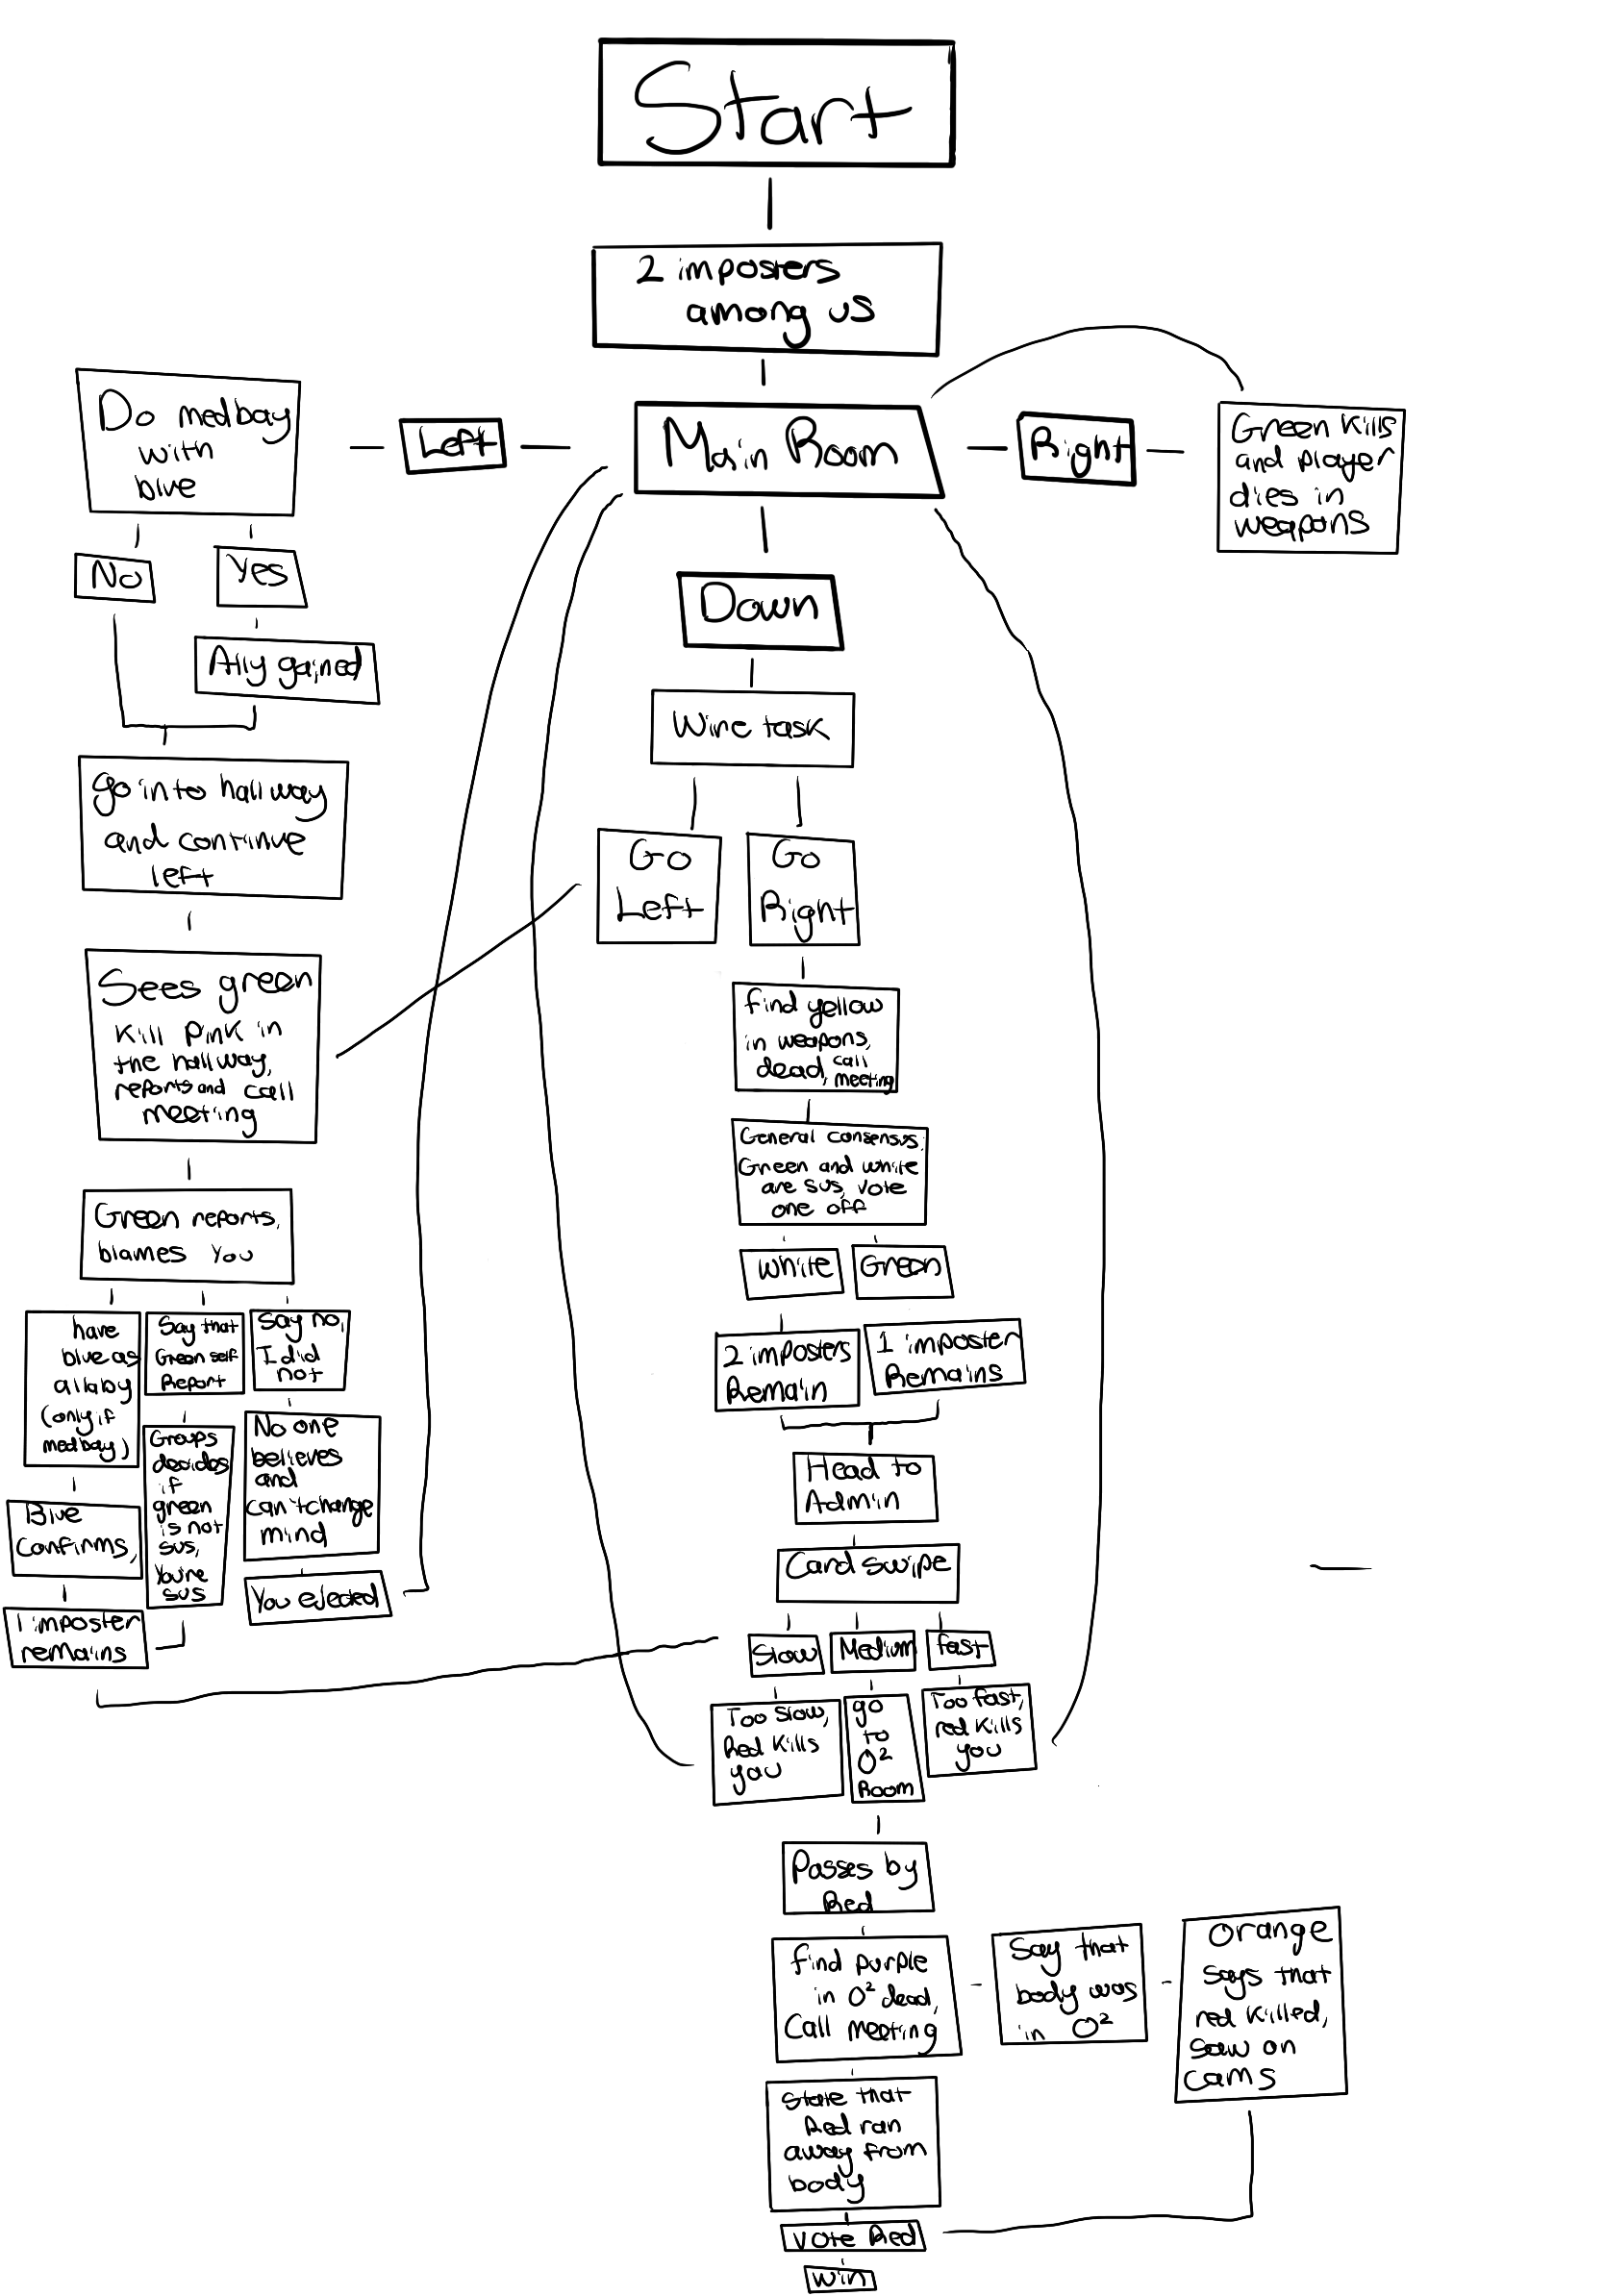 Start
2 imposters
among us
Main Room
Left
Right
Green kills
and player
dies in
weapons
Do medbay
with
blue
No
Yes
Ally gained
go into hallway
and continue
left
Sees green
kill pink in
the hallway,
reports and call
meeting
Green reports,
blames you
have
blue as
allaby
(only if
medbay)
Say that
Green self
Report
Say no,
I did
not
Blue
confirms,
Groups
decides
if
green
is not
sus,
You're
sus
No one
believes
and
can't change
mind
1 imposter
remains
You ejected
Down
Wire task
Go
Left
Go
Right
find yellow
in weapons,
dead, call
meeting
General consensus,
Green and white
are sus, vote
one off
White
Green
2 imposters
Remain
1 imposter
Remains
Head to
Admin
Card swipe
Slow
Medium
fast
Too slow,
Red kills
you
go
to
O²
Room
Too fast,
red kills
you
Passes by
Red
find purple
in O² dead,
Call meeting
Say that
body was
in O²
orange
says that
red killed,
saw on
cams
State that
Red ran
away from
body
Vote Red
win